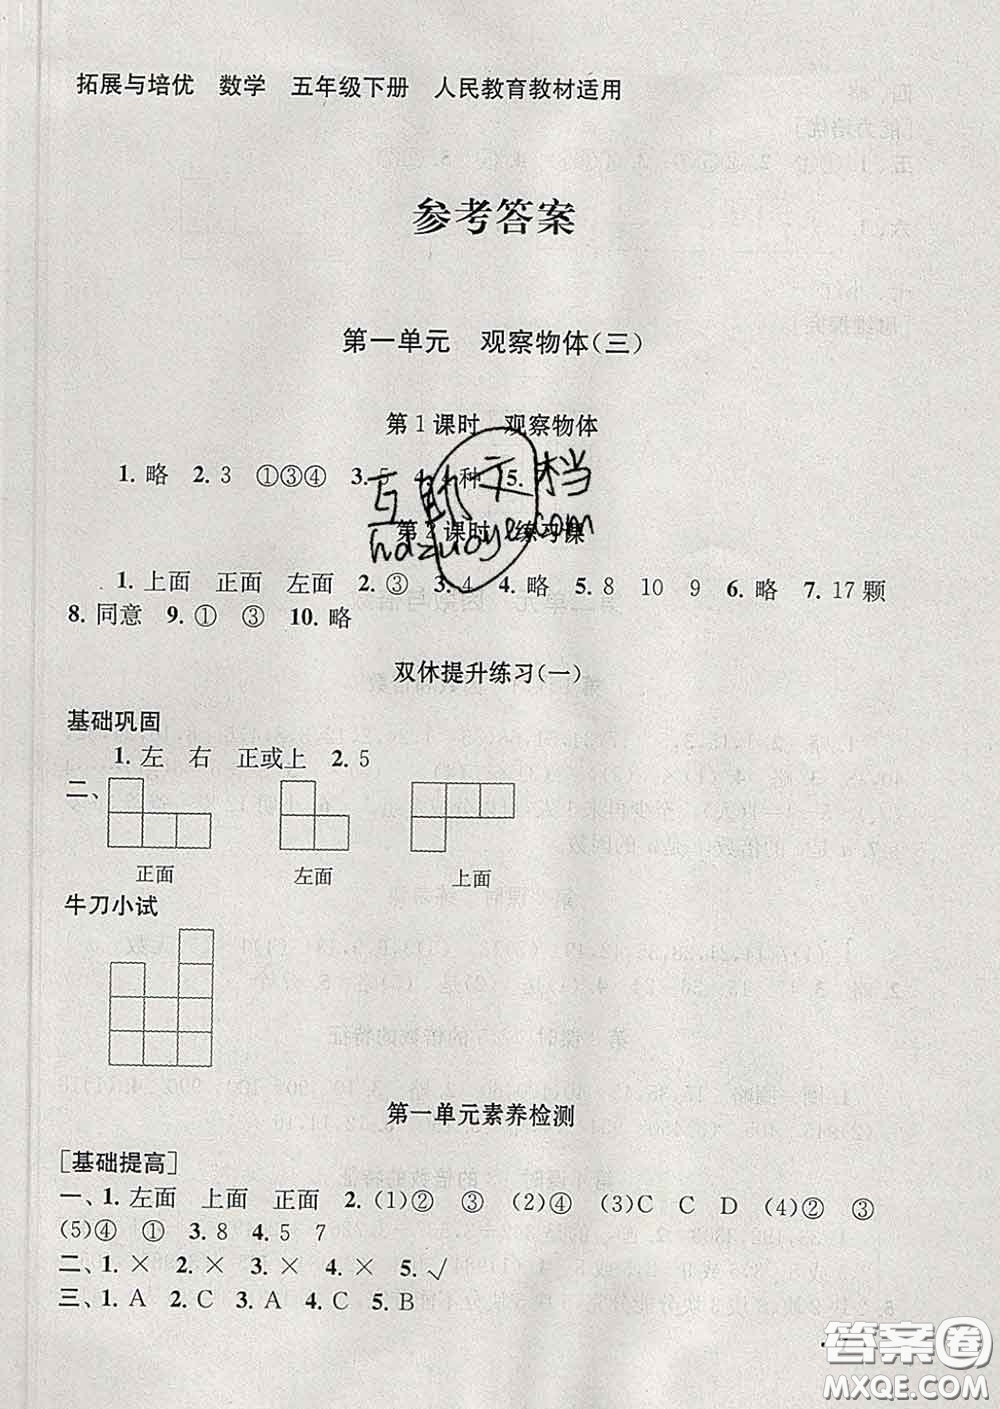 拓展与培优　数学　五年级下册　人民教育教材适用
参考答案
第一单元　观察物体(三)
第1课时　观察物体
1. 略　2. 3　①③④　3. 5　4. 4种　5.
第2课时　练习课
1. 上面　正面　左面　2. ③　3. 4　4. 略　5. 8　10　9　6. 略　7. 17颗
8. 同意　9. ①　③　10. 略
双休提升练习(一)
基础巩固
一、1. 左　右　正或上　2. 5
二、
正面　左面　上面
牛刀小试
第一单元素养检测
[基础提高]
一、1. 左面　上面　正面　2. (1)②　③　(2)④　(3)C　C　D　(4)②　③
(5)④　①　3. 8　4. 5　7
二、1. ×　2. ×　3. ×　4. ×　5. √
三、1. A　2. C　3. A　4. C　5. B
互助文档
hdzuoye.com
答案圈
MXQE.COM